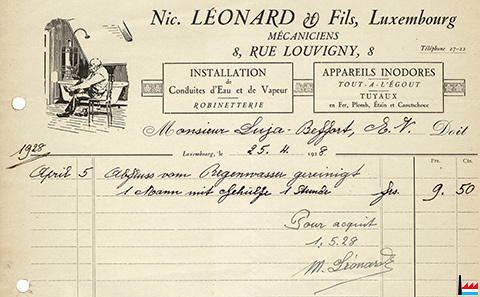 Nic. LÉONARD & Fils, Luxembourg
MÉCANICIENS
8, RUE LOUVIGNY, 8
Téléphone 17-22
INSTALLATION
de
Conduites d'Eau et de Vapeur
ROBINETTERIE
APPAREILS INODORES
TOUT-A-L'ÉGOUT
TUYAUX
en Fer, Plomb, Étain et Caoutschouc
Monsieur Luja-Beffort, E. V. Doit
1928
Luxembourg, le 25. 4. 1918.
Frs. Cts.
April 5 Abfluss vom Regenwasser gereinigt
1 Mann mit Gehülfe 1 Stunde frs. 9. 50
Pour acquit
1. 5. 28
M. Léonard